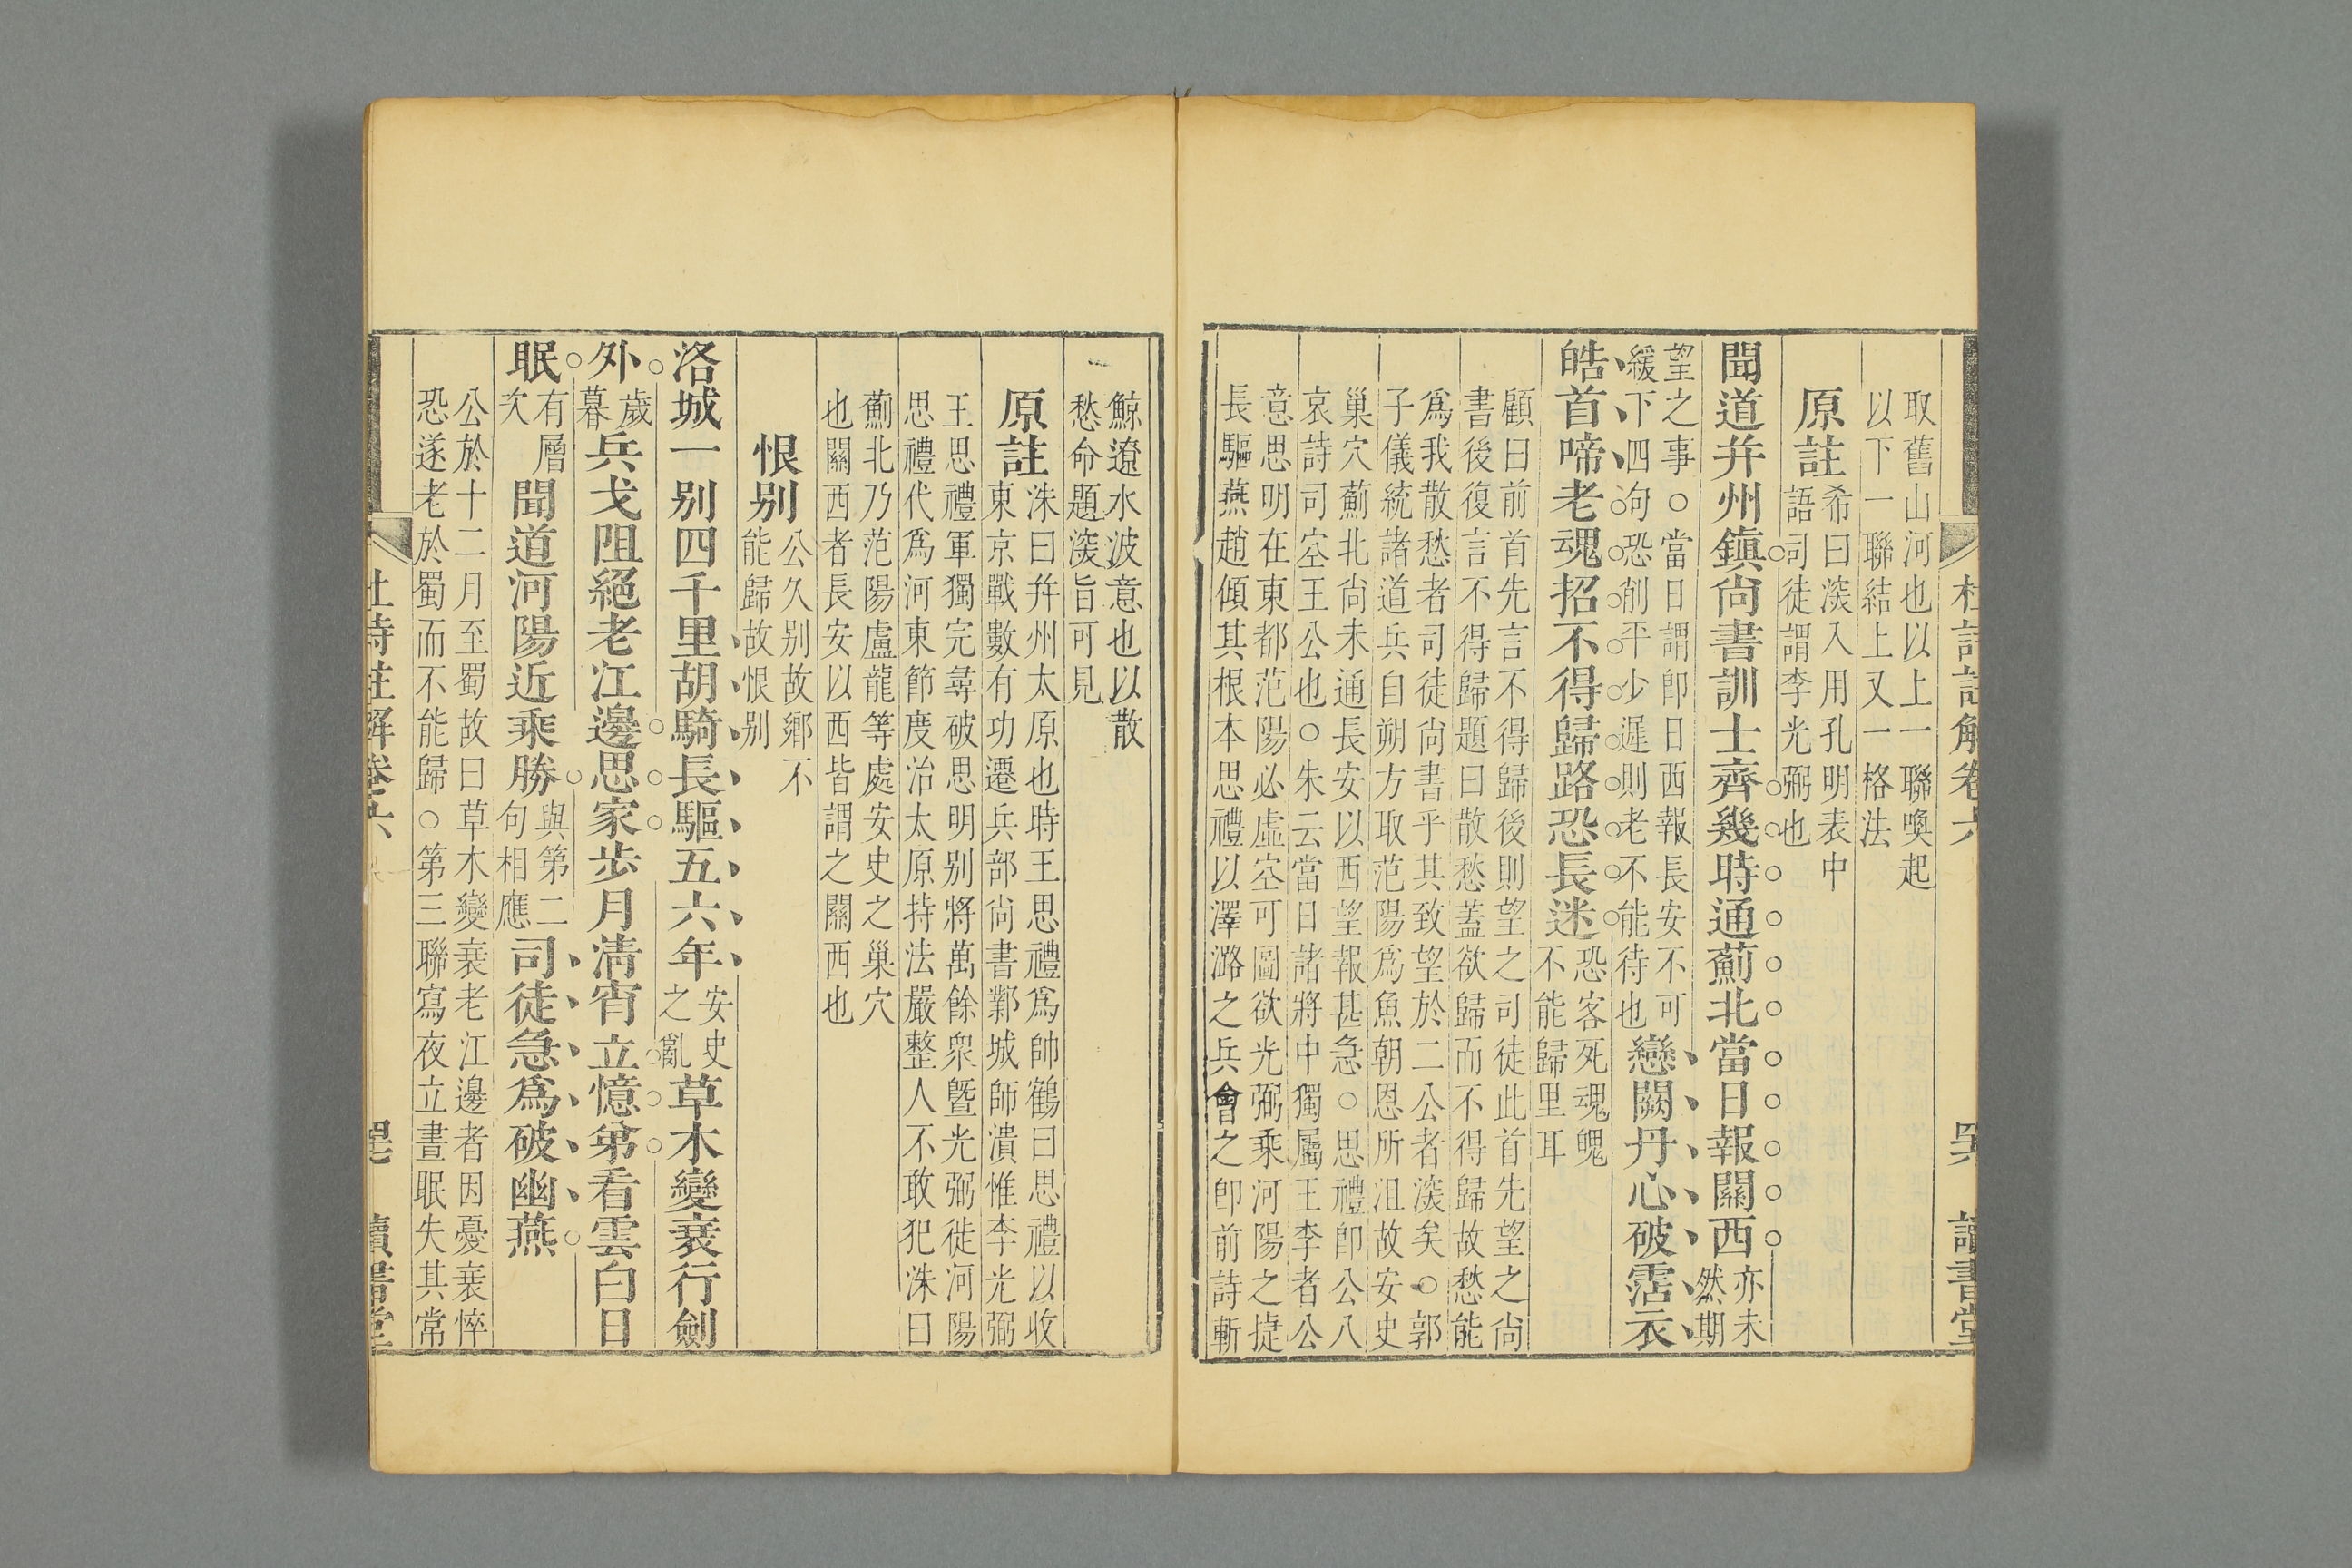 杜詩註解卷六 讀書堂
取舊山河也以上一聯喚起
以下一聯結上又一格法
原註希曰湥入用孔明表中
語司徒謂李光弼也
聞道并州鎭尙書訓士齊幾時通薊北當日報關西亦未
然期
望之事○當日謂卽日西報長安不可
緩下四句恐削平少遲則老不能待也戀闕丹心破霑衣
皓首啼老魂招不得歸路恐長迷恐客死魂魄
不能歸里耳
顧曰前首先言不得歸後則望之司徒此首先望之尙
書後復言不得歸題曰散愁蓋欲歸而不得歸故愁能
爲我散愁者司徒尙書乎其致望於二公者湥矣○郭
子儀統諸道兵自朔方取范陽爲魚朝恩所沮故安史
巢穴薊北尙未通長安以西望報甚急○思禮卽公八
哀詩司空王公也○朱云當日諸將中獨屬王李者公
意思明在東都范陽必虛空可圖欲光弼乘河陽之捷
長驅燕趙傾其根本思禮以澤潞之兵會之卽前詩斬
鯨遼水波意也以散
愁命題湥旨可見
原註洙曰幷州太原也時王思禮爲帥鶴曰思禮以收
東京戰數有功遷兵部尙書鄴城師潰惟李光弼
王思禮軍獨完尋破思明别將萬餘衆暨光弼徙河陽
思禮代爲河東節度治太原持法嚴整人不敢犯洙曰
薊北乃范陽盧龍等處安史之巢穴
也關西者長安以西皆謂之關西也
恨别公久别故鄉不
能歸故恨别
洛城一别四千里胡騎長驅五六年安史
之亂草木變衰行劍
外歲
暮兵戈阻絕老江邊思家步月淸宵立憶弟看雲白日
眠有層
次聞道河陽近乘勝與第二
句相應司徒急爲破幽燕
公於十二月至蜀故曰草木變衰老江邊者因憂衰悴
恐遂老於蜀而不能歸○第三聯寫夜立晝眠失其常
杜詩註解卷六 讀書堂